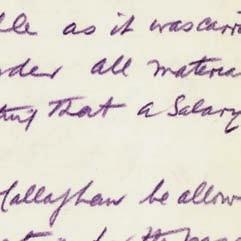 ble as it was carri
nder all materia
ting that a Salary
Callaghan be allow